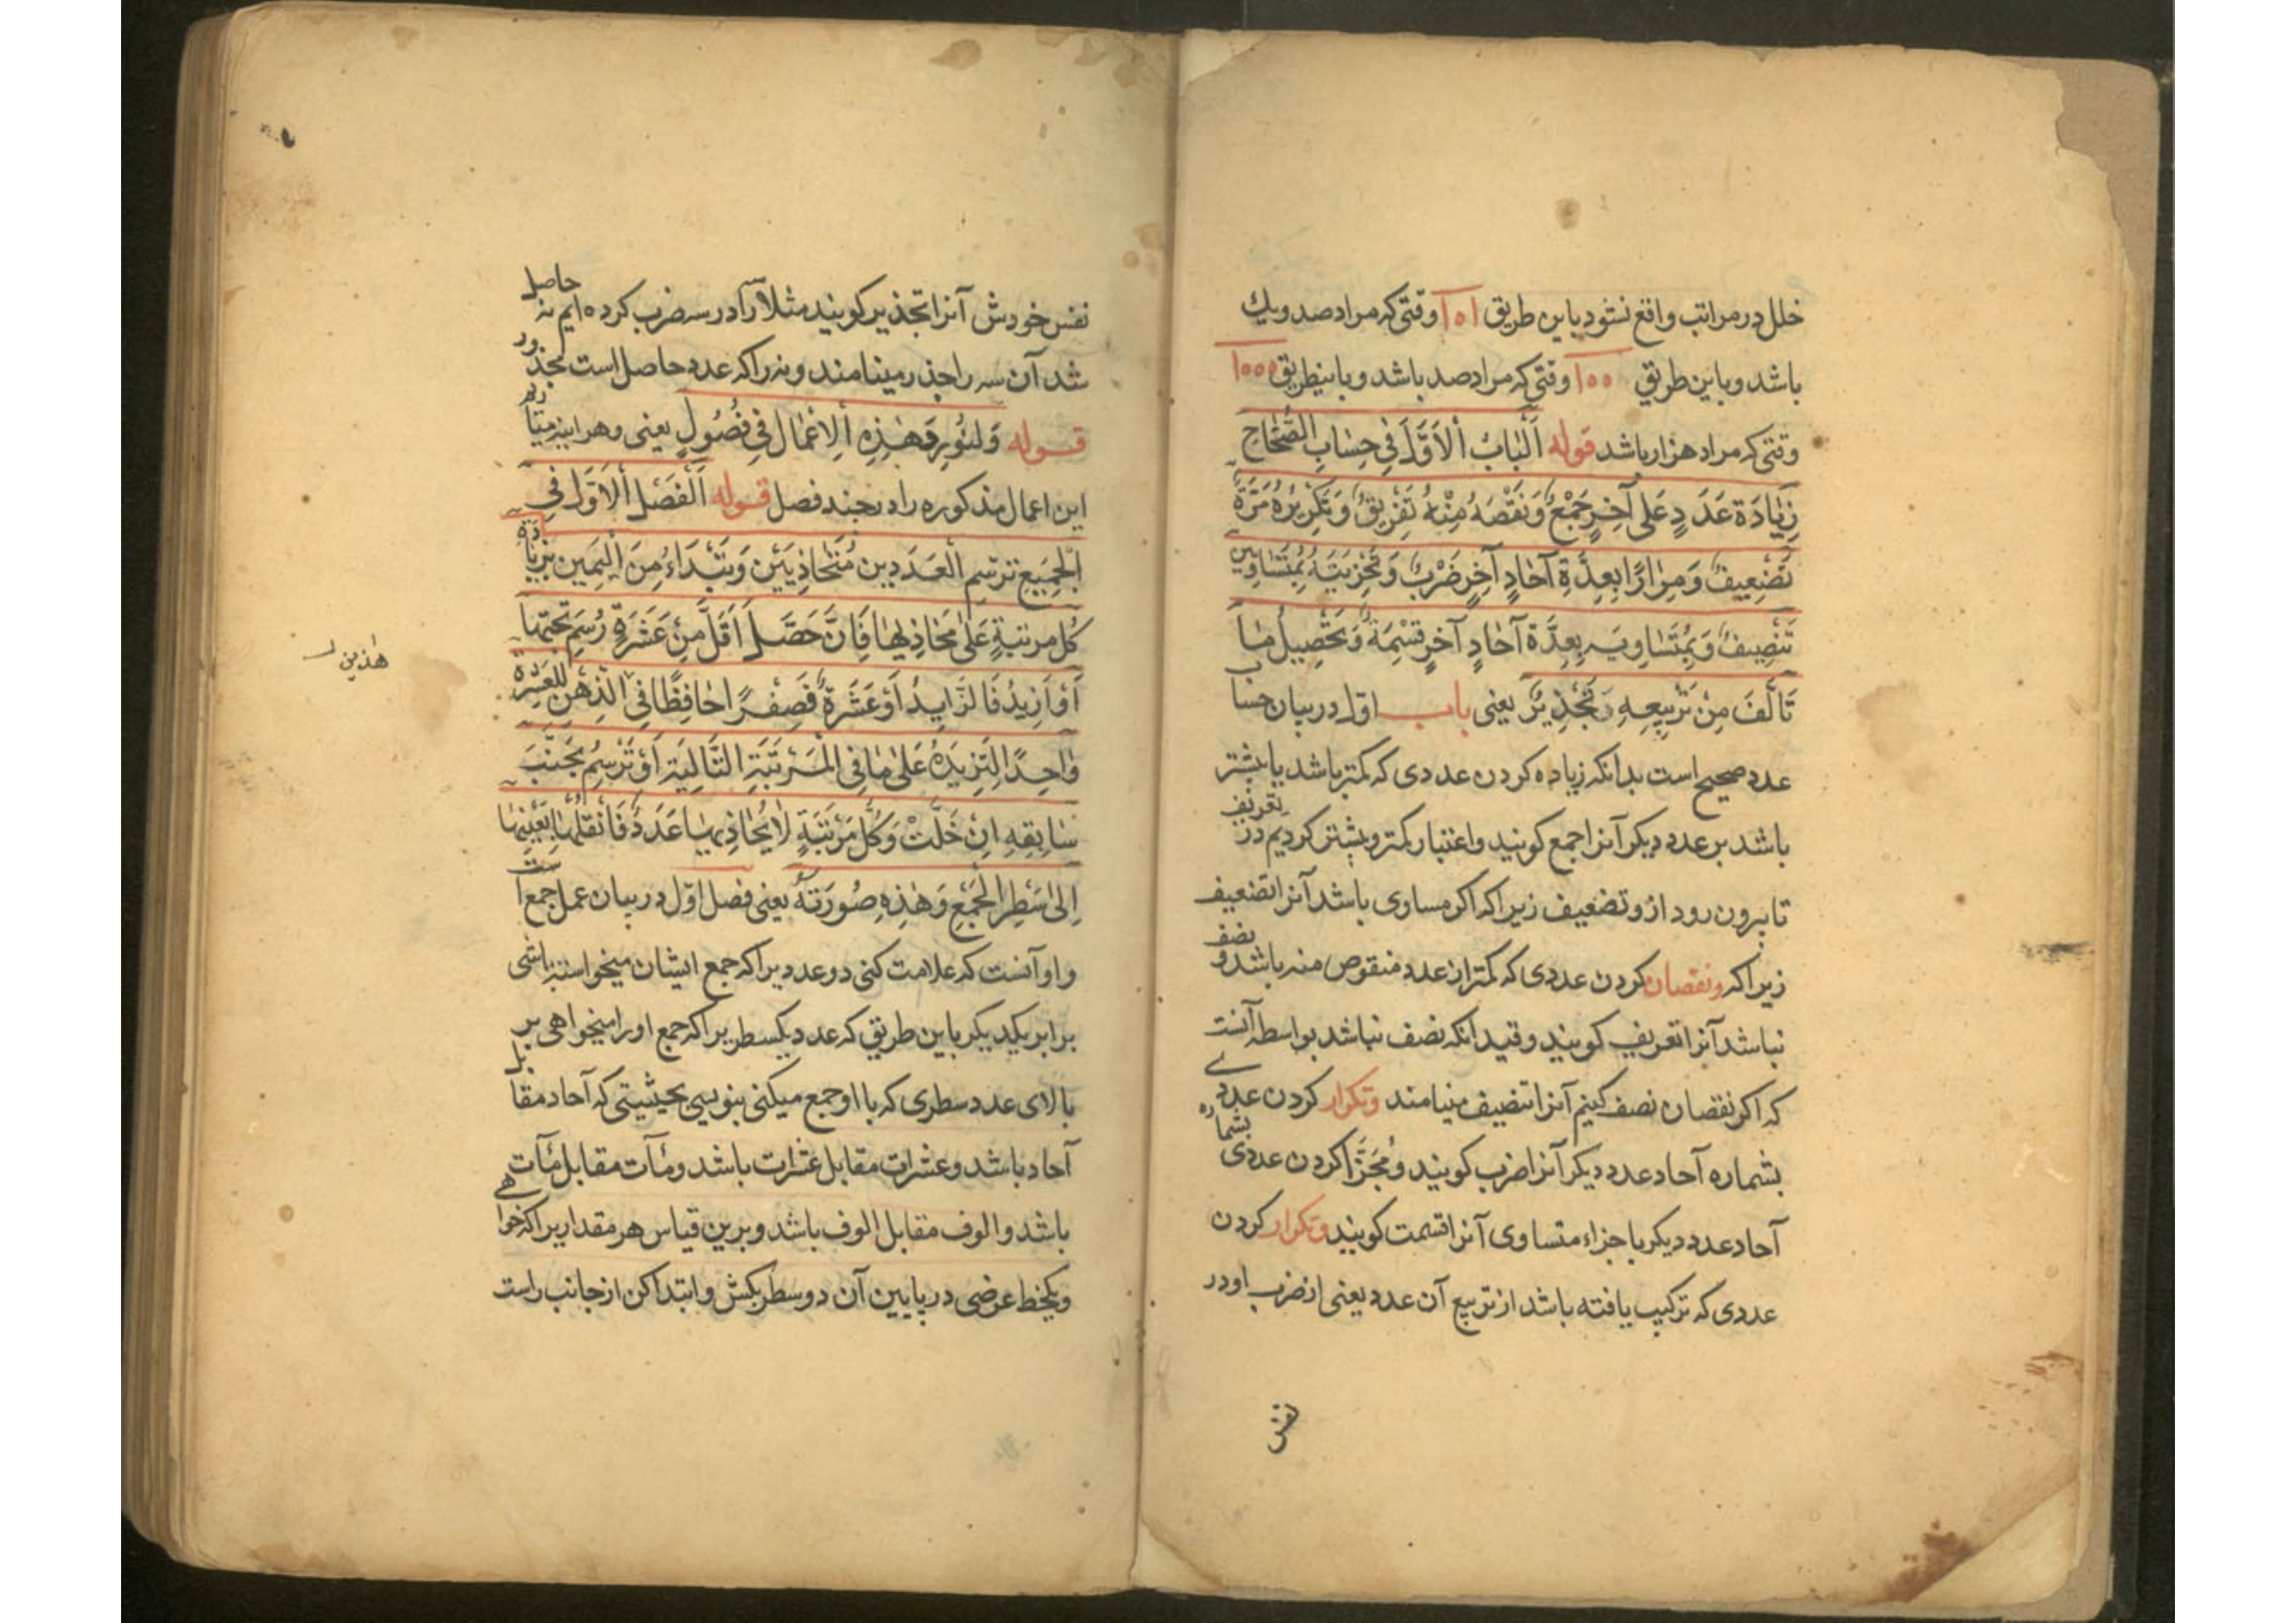 خلل در مراتب واقع نشود باین طریق ۱۵۱ وقتی که مراد صد ویك
باشد وباین طریق ۱۵۵ وقتی که مراد صد باشد وباینطریق ۱۵۵۵
وقتی که مراد هزار باشد قوله اَلْبٰابُ الْاَوَّلُ فِی حِسٰابِ الصِّحٰاحِ
زِیٰادَة عَدَدٍ عَلٰی آخِرٍ جَمْعٌ وَنَقْصُهُ مِنْهُ تَفْرِیقٌ وَتَکْرِیرُهُ مَرَّةً
تَضْعِیفٌ وَمِرٰارًا بِعِدَّةِ آحٰادِ آخِرٍ ضَرْبٌ وَتَجْزِیَتُهُ بِمُتَسٰاوِیَیْنِ
تَنْصِیفٌ وَبِمُتَسٰاوِیَه بِعِدَّةِ آحٰادِ آخِرٍ قِسْمَةٌ وَتَحْصِیلُ مٰا
تَأَلَّفَ مِنْ تَرْبِیعِهِ تَجْذِیرٌ یعنی باب اول در بیان حساب
عدد صحیح است بدانکه زیاده کردن عددی که کمتر باشد یا بیشتر
باشد بر عدد دیکر آنرا جمع کویند واعتبار کمتر وبیشتر کردیم در تعریف
تا برون رود ازو تضعیف زیرا که اکر مساوی باشد آنرا تضعیف
زیرا که ونقصان کردن عددی که کمتر از عدد منقوص منه باشد ونصف
نباشد آنرا تعریف کویند وقید انکه نصف نباشد بواسطه آنست
که اکر نقصان نصف کنیم آنرا تنصیف مینامند وتکرار کردن عددے
بشماره آحاد عدد دیکر آنرا ضرب کویند ومُجَزَّا کردن عددی بشماره
آحاد عدد دیکر باجزاء متساوی آنرا قسمت کویند وتکرار کردن
عددی که ترکیب یافته باشد از تربیع آن عدد یعنی از ضرب او در
نفس
نفس خودش آنرا تجذیر کویند مثلا سه را در سه ضرب کرده ایم نه حاصل
شد آن سه را جذر مینامند ونه را که عدد حاصل است مجذور
قوله وَلنُورِد هٰذِهِ الاَعْمٰال فِی فُصُولٍ یعنی وهر اینه میاریم
این اعمال مذکوره را در چند فصل قوله اَلْفَصْل الْاَوَّل فِی
الْجَمِیعِ تَرْسِم الْعَدَدین مُتَحٰاذِیَیْن وَتَبْدَاءُ مِنَ الْیَمِین بِزِیٰادَة
کُل مرتبةٍ عَلٰی مُحٰاذِیهٰا فَاِنَّ حَصَلَ اَقَلّ مِنْ عَشَرَةٍ رُسِم تَحْتَهٰا
اَوْ اَزِیدُ فَالزَّایِدُ اَوْ عَشَرَةً فَصِفْرًا حٰافِظًا فِی الذِّهْنِ لِلْعَشَرَة
وٰاحِدًا لِتَزِیدَهُ عَلٰی مٰا فِی الْمَرْتَبَةِ التّٰالِیَة اَوْ تَرْسُمُ بِجَنْبِ
سٰابِقِهِ اِنْ خَلَتْ وَکُلّ مَرْتَبَةٍ لٰا یُحٰاذِیهٰا عَدَدٌ فَانْقُلْهٰا بِعَیْنِهٰا
اِلٰی سَطِر الْجَمْعِ وَهٰذِهِ صُورَتَهُ یعنی فصل اوّل در بیان عمل جمع است
واو آنست که علامت کنی دو عدد یرا که جمع ایشان میخواسته باشی
برابر یکدیکر باین طریق که عدد یکسطر یرا که جمع اورا میخواهی بر
بالای عدد سطری که با او جمع میکنی بنویسی بحیثیتی که آحاد مقابل
آحاد باشد وعشرات مقابل عشرات باشد ومآت مقابل مآت
باشد والوف مقابل الوف باشد وبرین قیاس هر مقدار یرا که خواهے
ویکخط عرضی در پایین آن دو سطر بکش وابتدا کن از جانب راست
هٰذین